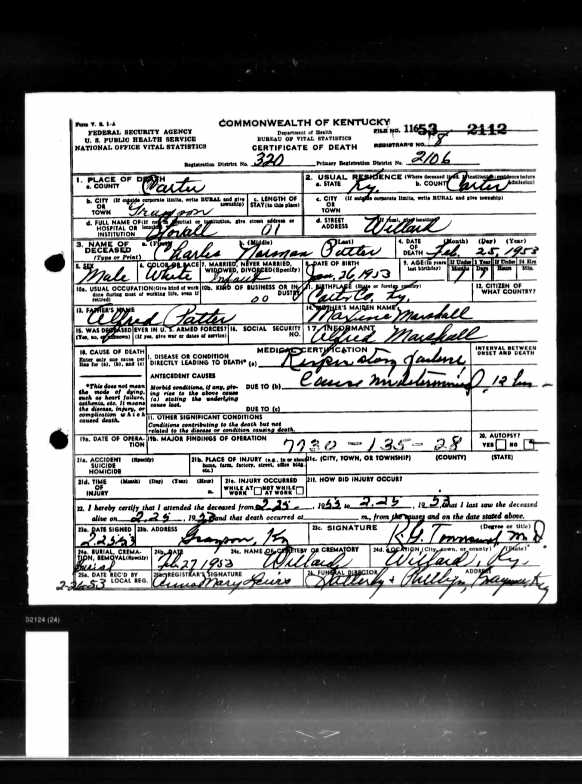 Form V. S. 1-A
COMMONWEALTH OF KENTUCKY
FEDERAL SECURITY AGENCY
U. S. PUBLIC HEALTH SERVICE
NATIONAL OFFICE VITAL STATISTICS
Department of Health
BUREAU OF VITAL STATISTICS
CERTIFICATE OF DEATH
FILE NO. 116 53 2112
REGISTRAR'S NO. 8
Registration District No. 320 Primary Registration District No. 2106
1. PLACE OF DEATH
a. COUNTY Carter
2. USUAL RESIDENCE (Where deceased lived. If institution: residence before admission)
a. STATE Ky. b. COUNTY Carter
b. CITY (If outside corporate limits, write RURAL and give township) OR TOWN Grayson
c. LENGTH OF STAY (in this place)
c. CITY (If outside corporate limits, write RURAL and give township) OR TOWN
d. FULL NAME OF (If not in hospital or institution, give street address or location) HOSPITAL OR INSTITUTION Stovall 01
d. STREET ADDRESS (If rural, give location) Willard
3. NAME OF DECEASED (Type or Print) a. (First) Charles b. (Middle) Norman c. (Last)
4. DATE OF DEATH (Month) (Day) (Year) Feb. 25 1953
5. SEX Male
6. COLOR OR RACE White
7. MARRIED, NEVER MARRIED, WIDOWED, DIVORCED (Specify) Infant
8. DATE OF BIRTH Jan. 26 1953
9. AGE (In years last birthday) If Under 1 Year Months 1 Days If Under 24 Hrs Hours Min.
10a. USUAL OCCUPATION (Give kind of work done during most of working life, even if retired)
10b. KIND OF BUSINESS OR INDUSTRY 00
11. BIRTHPLACE (State or foreign country) Carter Co. Ky.
12. CITIZEN OF WHAT COUNTRY?
13. FATHER'S NAME Alfred
14. MOTHER'S MAIDEN NAME Maxine Marshall
15. WAS DECEASED EVER IN U. S. ARMED FORCES? (Yes, no, or unknown) (If yes, give war or dates of service)
16. SOCIAL SECURITY NO.
17. INFORMANT Alfred Marshall
18. CAUSE OF DEATH
Enter only one cause per line for (a), (b), and (c)
MEDICAL CERTIFICATION
INTERVAL BETWEEN ONSET AND DEATH
I. DISEASE OR CONDITION DIRECTLY LEADING TO DEATH* (a) Respiratory failure
*This does not mean the mode of dying, such as heart failure, asthenia, etc. It means the disease, injury, or complication which caused death.
ANTECEDENT CAUSES
Morbid conditions, if any, giving rise to the above cause (a) stating the underlying cause last.
DUE TO (b) Cause undetermined 12 hrs
DUE TO (c)
II. OTHER SIGNIFICANT CONDITIONS
Conditions contributing to the death but not related to the disease or condition causing death.
19a. DATE OF OPERATION
19b. MAJOR FINDINGS OF OPERATION
7730 - 135 - 28
20. AUTOPSY? YES NO
21a. ACCIDENT SUICIDE HOMICIDE (Specify)
21b. PLACE OF INJURY (e.g., in or about home, farm, factory, street, office bldg., etc.)
21c. (CITY, TOWN, OR TOWNSHIP) (COUNTY) (STATE)
21d. TIME OF INJURY (Month) (Day) (Year) (Hour) m.
21e. INJURY OCCURRED WHILE AT WORK NOT WHILE AT WORK
21f. HOW DID INJURY OCCUR?
22. I hereby certify that I attended the deceased from 2-25-, 1953 to 2-25, 1953 that I last saw the deceased
alive on 2-25, 1953 and that death occurred at m., from the causes and on the date stated above.
23a. DATE SIGNED 2-25-53
23b. ADDRESS Grayson, Ky
23c. SIGNATURE (Degree or title) M D
24a. BURIAL, CREMATION, REMOVAL (Specify) Burial
24b. DATE Feb. 27 1953
24c. NAME OF CEMETERY OR CREMATORY Willard
24d. LOCATION (City, town, or county) (State) Willard, Ky.
25a. DATE REC'D BY LOCAL REG. 2-26-53
25b. REGISTRAR'S SIGNATURE
26. FUNERAL DIRECTOR ADDRESS Grayson, Ky
02124 (24)